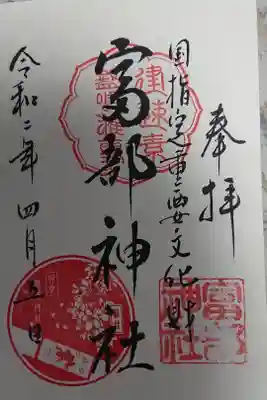 奉拝
国指定重要文化財
富部神社
令和二年四月五日
富部
神社